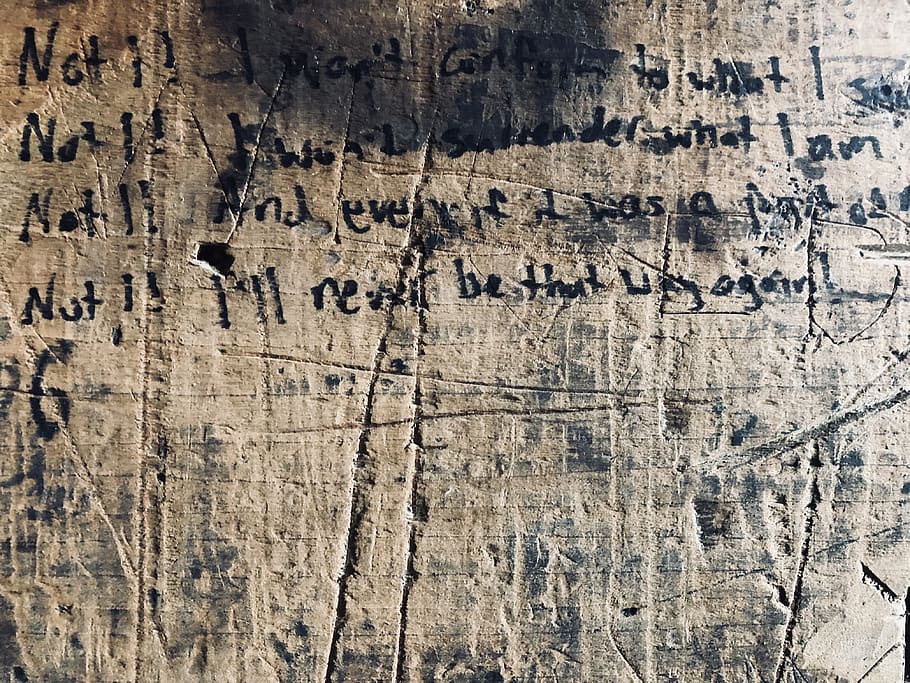 Not!! I won't conform to what I
Not!! I won't surrender what I am
Not!! And even if it was a
Not!! I'll never be that way again!